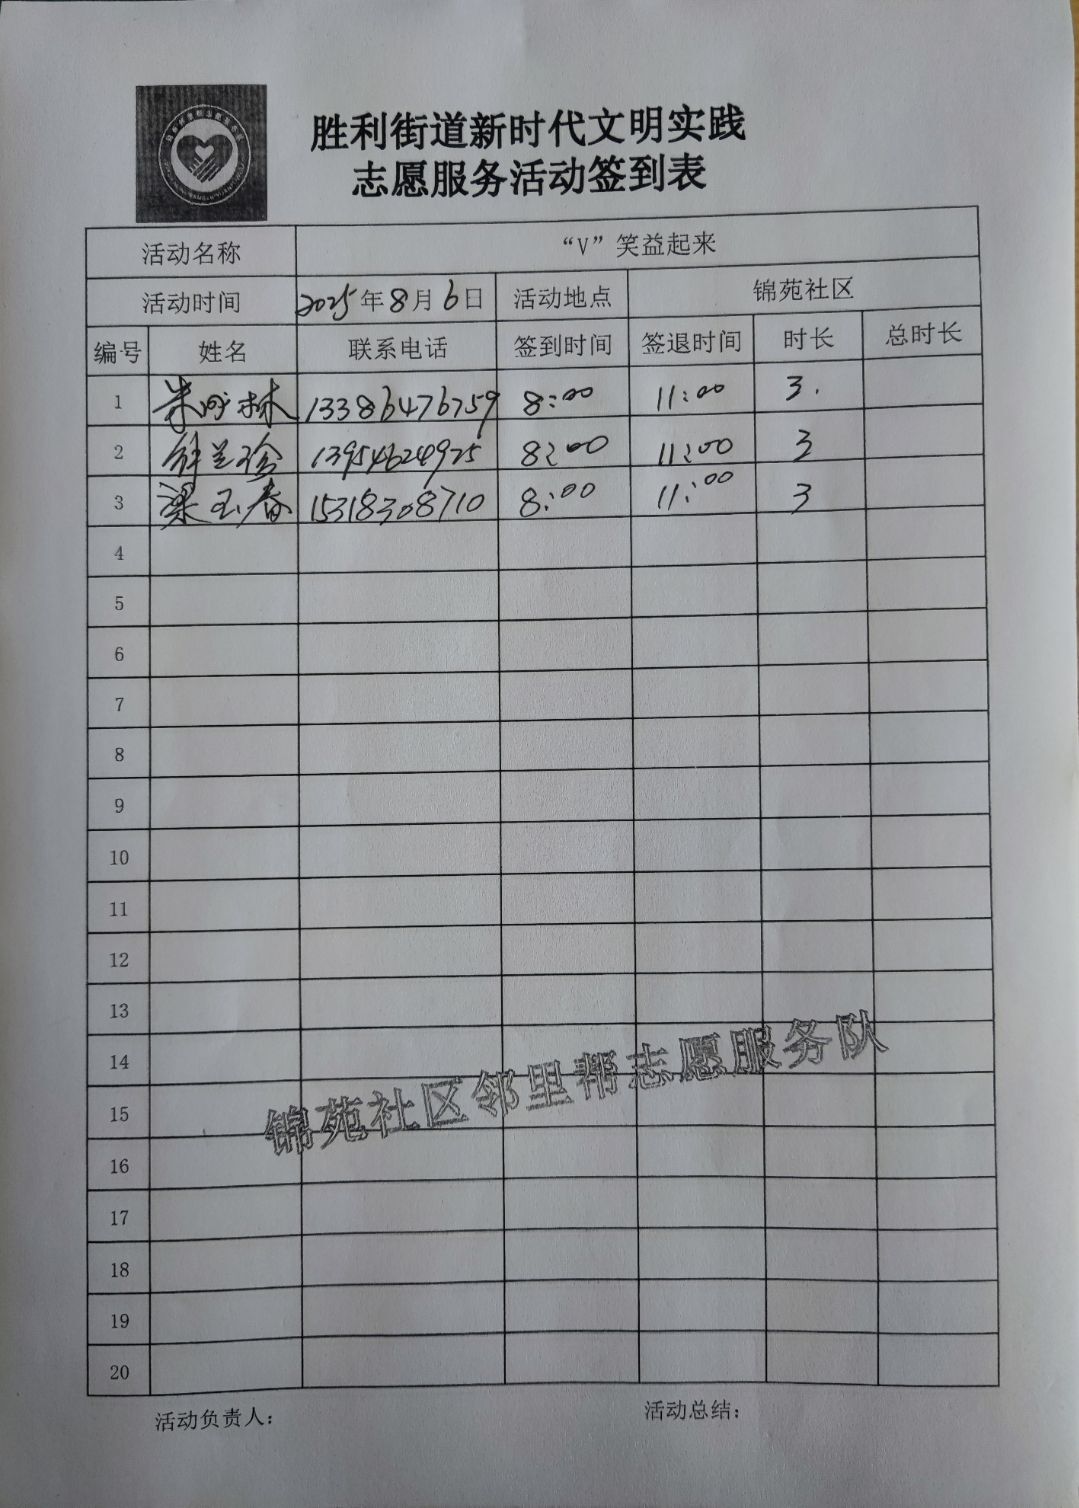 胜利街道新时代文明实践
志愿服务活动签到表
活动名称 “V”笑益起来
活动时间 2025年8月6日 活动地点 锦苑社区
编号 姓名 联系电话 签到时间 签退时间 时长 总时长
1 朱 林 13386476759 8:00 11:00 3.
2 兰珍 13954624925 8:00 11:00 3
3 梁玉春 15318308710 8:00 11:00 3
4
5
6
7
8
9
10
11
12
13
14
锦苑社区邻里帮志愿服务队
15
16
17
18
19
20
活动负责人： 活动总结：